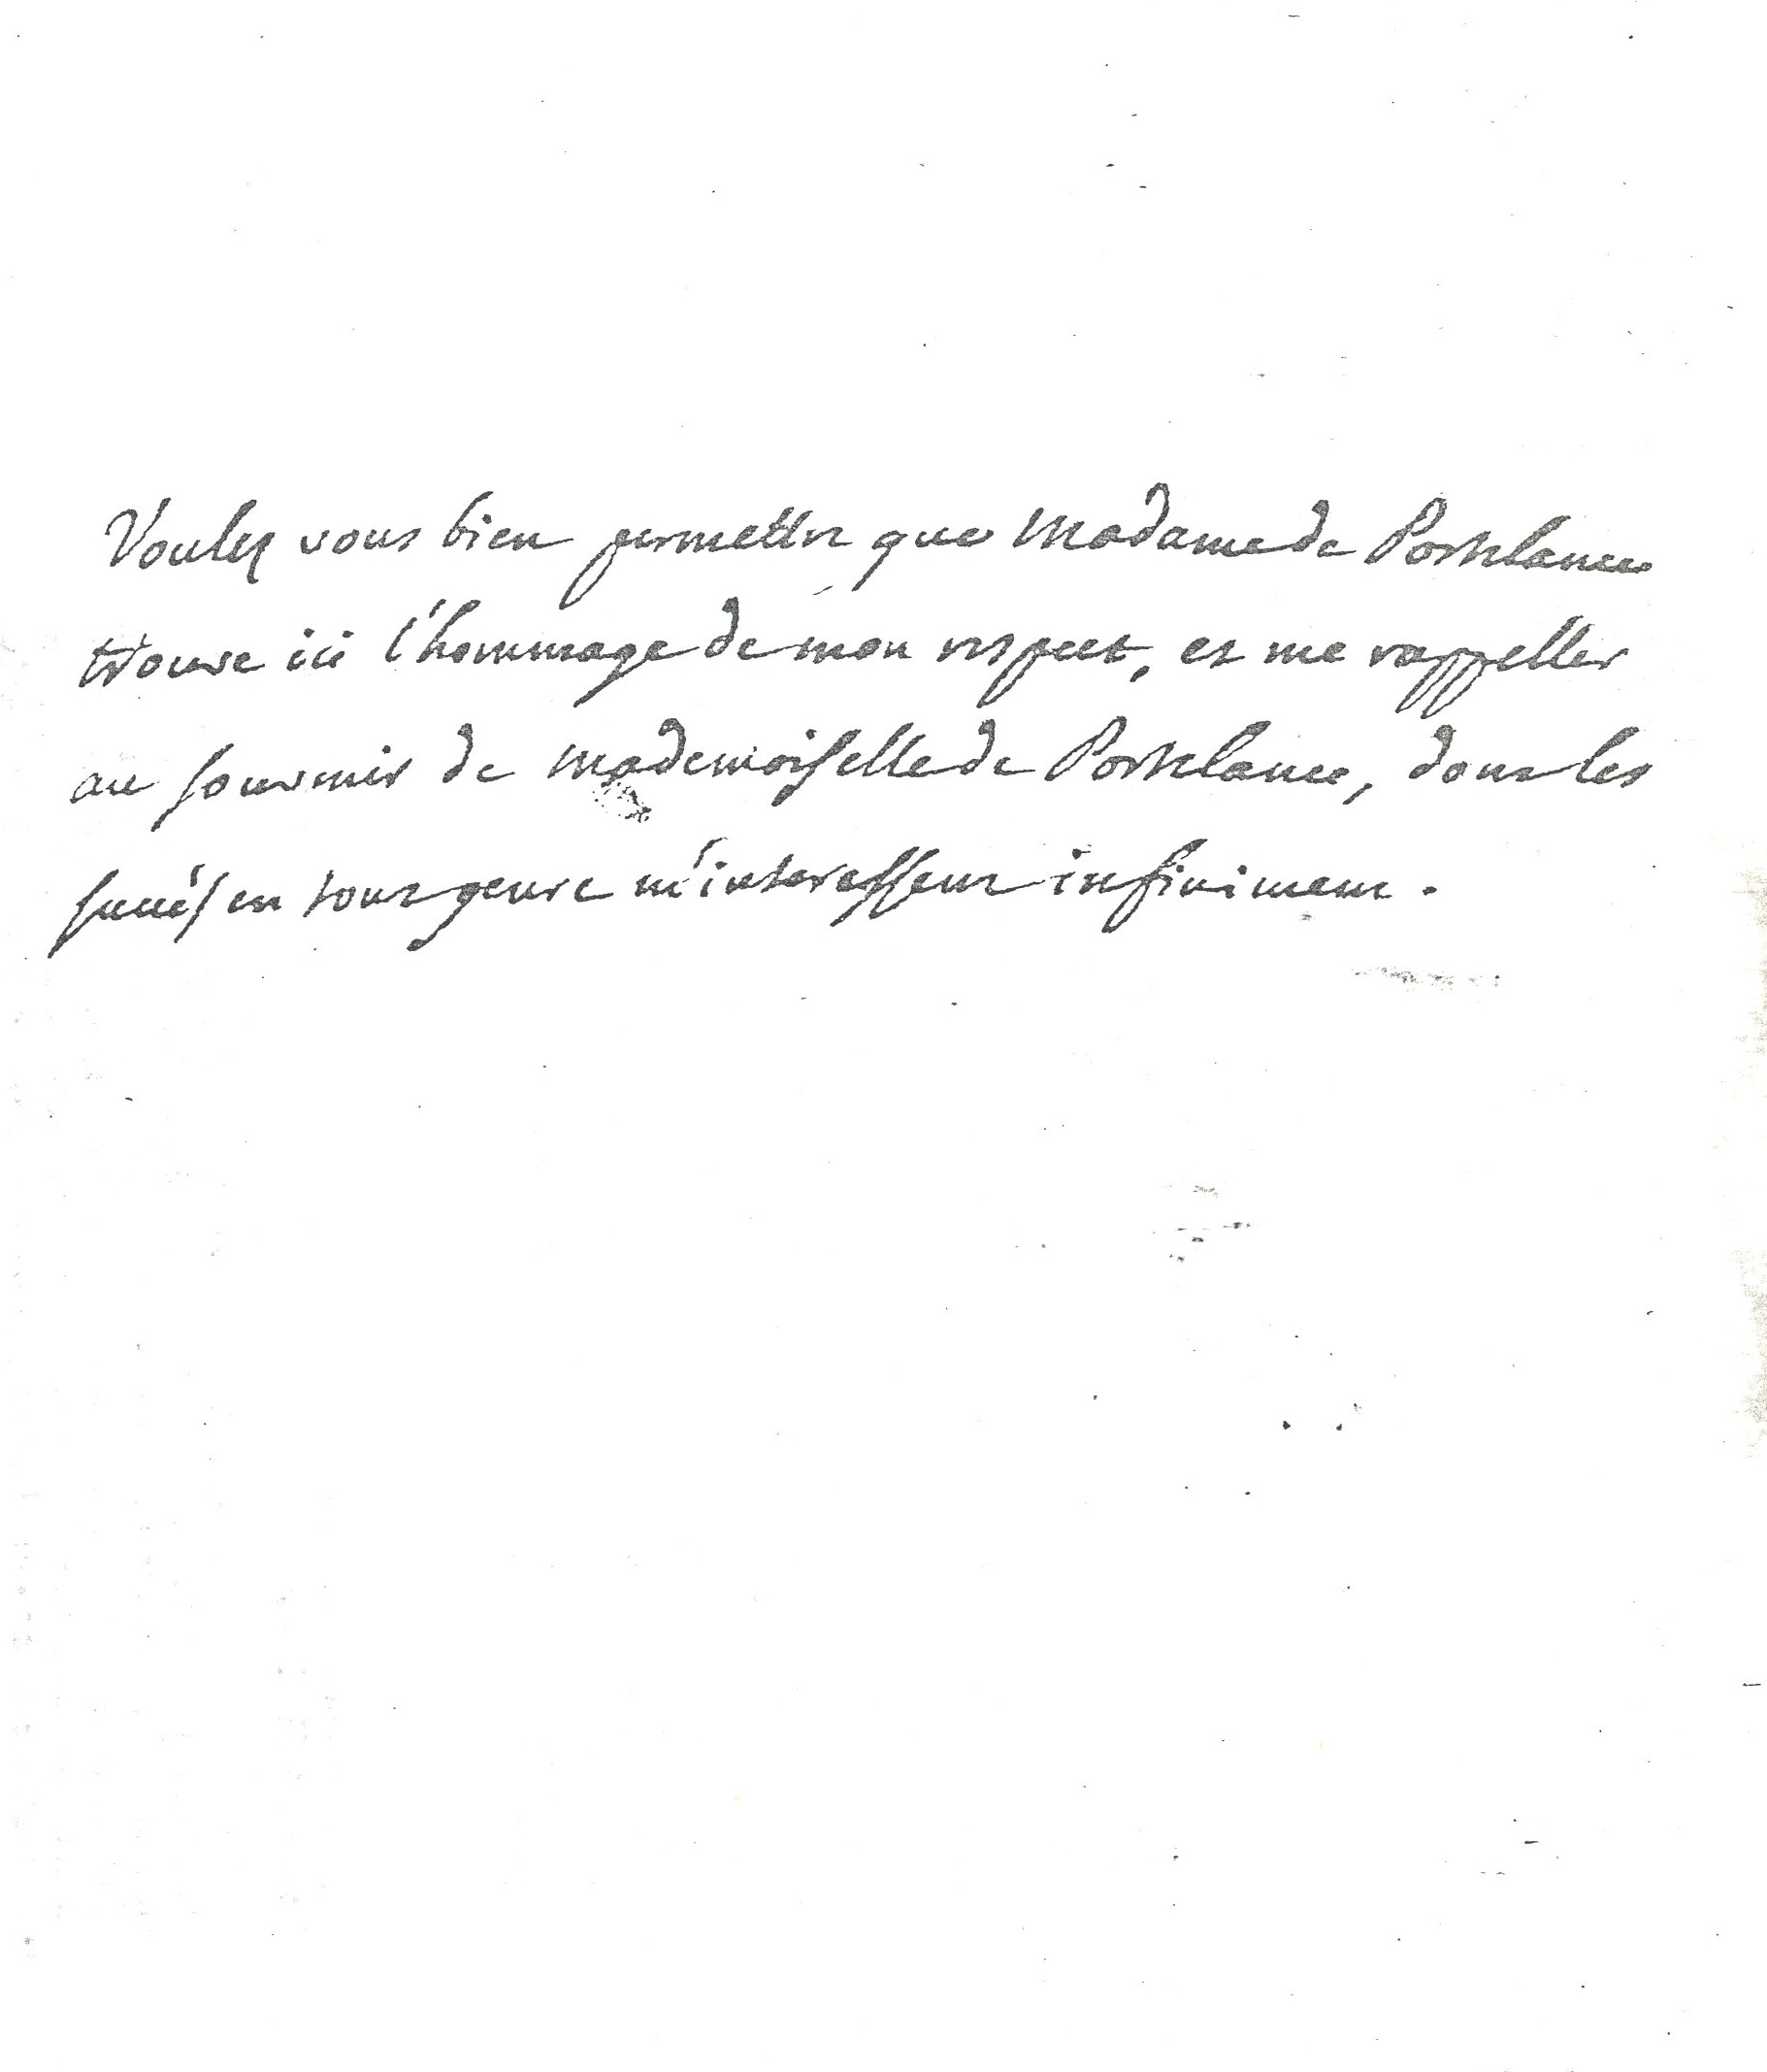 Voulez vous bien permettre que Madame de Portelance
trouve ici l'hommage de mon respect, et me rappeller
au souvenir de Mademoiselle de Portelance, dont les
succés en tout genre m'interessent infiniment.